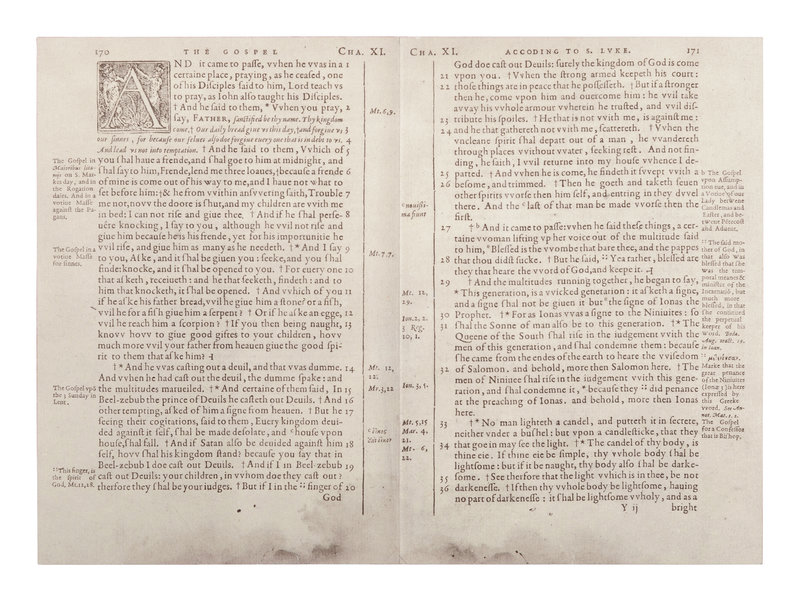 170 THE GOSPEL CHA. XI.
AND it came to passe, vvhen he vvas in a 1
certaine place, praying, as he ceased, one
of his Disciples said to him, Lord teach vs
to pray, as Iohn also taught his Disciples.
† And he said to them, * Vvhen you pray, 2
say, FATHER, sanctified be thy name. Thy kingdom
come, † Our daily bread giue vs this day, † and forgiue vs 3
our sinnes, for because our selues also doe forgiue euery one that is in debt to vs. 4
And lead vs not into temptation. † And he said to them, Vvhich of 5
you shal haue a frende, and shal goe to him at midnight, and
shal say to him, Frende, lend me three loaues, † because a frende 6
of mine is come out of his way to me, and I haue not vvhat to
set before him: † & he from vvithin ansvvering saith, Trouble 7
me not, novv the doore is shut, and my children are vvith me
in bed: I can not rise and giue thee. † And if he shal perse- 8
uêre knocking, I say to you, although he vvil not rise and
giue him because he is his frende, yet for his importunitie he
vvil rise, and giue him as many as he needeth. † * And I say 9
to you, Aske, and it shal be giuen you: seeke, and you shal
finde: knocke, and it shal be opened to you. † For euery one 10
that asketh, receiueth: and he that seeketh, findeth: and to
him that knocketh, it shal be opened. † And vvhich of you 11
if he aske his father bread, vvil he giue him a stone? or a fish,
vvil he for a fish giue him a serpent? † Or if he aske an egge, 12
vvil he reach him a scorpion? † If you then being naught, 13
knovv hovv to giue good giftes to your children, hovv
much more vvil your father from heauen giue the good spi-
rit to them that aske him? ⊣
† * And he vvas casting out a deuil, and that vvas dumme. 14
And vvhen he had cast out the deuil, the dumme spake: and
the multitudes marueiled. † And certaine of them said, In 15
Beel-zebub the prince of Deuils he casteth out Deuils. † And 16
other tempting, asked of him a signe from heauen. † But he 17
seeing their cogitations, said to them, Euery kingdom deui-
ded against it self, shal be made desolate, and house vpon
house, shal fall. † And if Satan also be deuided against him 18
self, hovv shal his kingdom stand? because you say that in
Beel-zebub I doe cast out Deuils. † And if I in Beel-zebub 19
cast out Deuils: your children, in vvhom doe they cast out?
therfore they shal be your iudges. † But if I in the :: finger of 20
God
The Gospel in
Maioribus litanijs on S. Mar-
kes day, and in
the Rogation
daies. And in a
votiue Masse
against the Pa-
gans.
The Gospel in a
votiue Masse
for sinnes.
The Gospel vpō
the 3 Sunday in
Lent.
:: This finger, is
the spirit of
God, Mt. 12, 28.
Mt. 6, 9.
Mt. 7, 7.
Mt. 12,
22.
Mr. 3, 12
CHA. XI. ACCODING TO S. LVKE. 171
God doe cast out Deuils: surely the kingdom of God is come
21 vpon you. † Vvhen the strong armed keepeth his court:
22 those things are in peace that he possesseth. † But if a stronger
then he, come vpon him and ouercome him: he vvil take
avvay his vvhole armour vvherein he trusted, and vvil dis-
23 tribute his spoiles. † He that is not vvith me, is against me:
24 and he that gathereth not vvith me, scattereth. † Vvhen the
vncleane spirit shal depart out of a man, he vvandereth
through places vvithout vvater, seeking rest. And not fin-
ding, he saith, I vvil returne into my house vvhence I de-
25 parted. † And vvhen he is come, he findeth it svvept vvith a
26 besome, and trimmed. † Then he goeth and taketh seuen
other spirits vvorse then him self, and entring in they dvvel
there. And the last of that man be made vvorse then the
first.
27 † b And it came to passe: vvhen he said these things, a cer-
taine vvoman lifting vp her voice out of the multitude said
to him, " Blessed is the vvombe that bare thee, and the pappes
28 that thou didst sucke. † But he said, :: Yea rather, blessed are
they that heare the vvord of God, and keepe it. ⊣
29 † And the multitudes running together, he began to say,
* This generation, is a vvicked generation: it asketh a signe,
and a signe shal not be giuen it but the signe of Ionas the
30 Prophet. † * For as Ionas vvas a signe to the Niniuites: so
31 shal the Sonne of man also be to this generation. † * The
Queene of the South shal rise in the iudgement vvith the
men of this generation, and shal condemne them: because
she came from the endes of the earth to heare the vvisedom
32 of Salomon. and behold, more then Salomon here. † The
men of Niniuee shal rise in the iudgement vvith this gene-
ration, and shal condemne it, * because they :: did penance
at the preaching of Ionas. and behold, more then Ionas
here.
33 † * No man lighteth a candel, and putteth it in secrete,
neither vnder a bushel: but vpon a candlesticke, that they
34 that goe in may see the light. † * The candel of thy body, is
thine eie. If thine eie be simple, thy vvhole body shal be
lightsome: but if it be naught, thy body also shal be darke-
35 some. † See therfore that the light vvhich is in thee, be not
36 darkenesse. † If then thy vvhole body be lightsome, hauing
no part of darkenesse: it shal be lightsome vvholy, and as a
Y ij bright
Mt. 12,
39.
Ion. 1, 2.
3 Reg.
10, 1.
Ion. 3, 5.
Mt. 5, 15
Mar. 4,
21.
Mt. 6,
22.
b The Gospel
vpon Assump-
tion eue, and in
a Votiue of our
Lady betwene
Candlemas and
Easter, and be-
twene Pētecost
and Aduent.
:: The said mo-
ther of God, in
that also was
blessed, that
she was the
temporal meanes &
minister of the
Incarnatiō, but
much more
blessed, in that
she continued
the perpetual
keeper of his
word. Beda.
Marke that the
great penance
of the Niniuites
(Iona 3) is here
expressed by
this Greeke
word.
The Gospel
for a Confessor
that is Bishop.